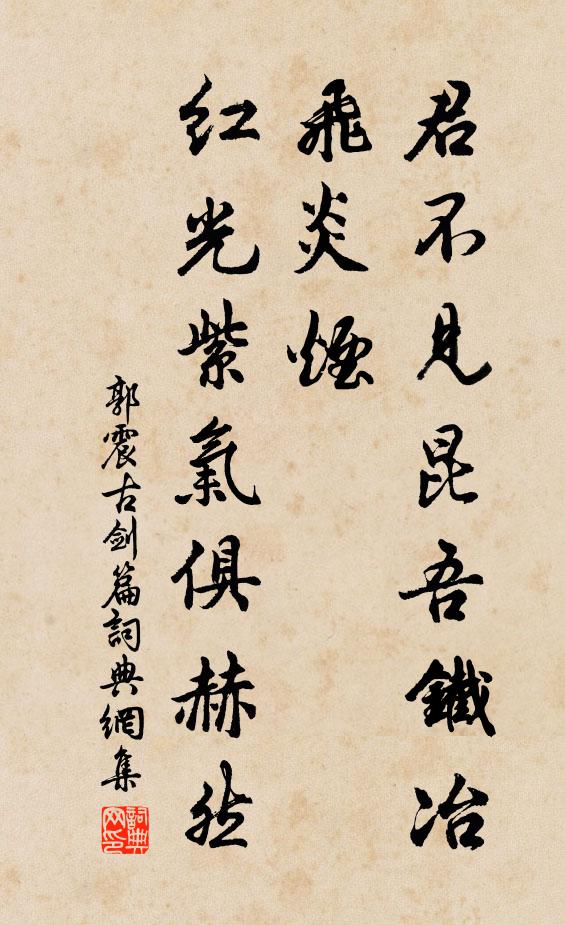 君不見昆吾鐵冶
飛炎煙
紅光紫氣俱赫然
郭震古劍篇詞典網集
詞典网印